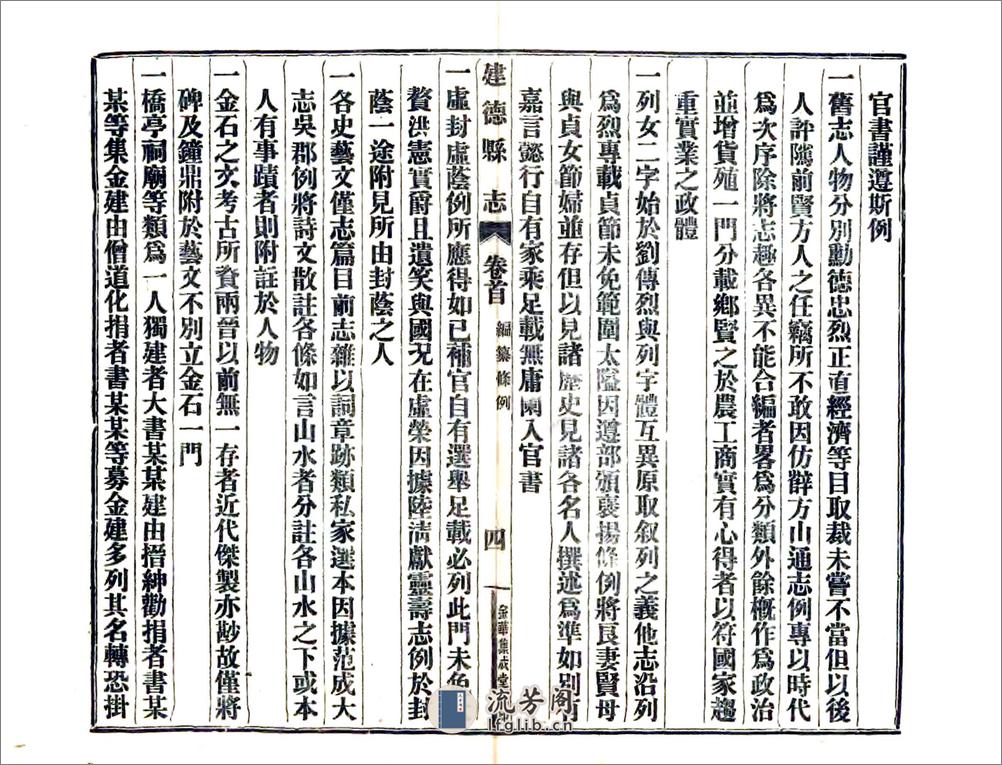 官書謹遵斯例
一舊志人物分別勳德忠烈正直經濟等目取裁未嘗不當但以後
人評隲前賢方人之任竊所不敢因仿薛方山通志例專以時代
爲次序除將志趣各異不能合編者畧爲分類外餘概作爲政治
並增貨殖一門分載鄉賢之於農工商實有心得者以符國家趨
重實業之政體
一列女二字始於劉傳烈與列字體互異原取叙列之義他志沿列
爲烈專載貞節未免範圍太隘因遵部頒褒揚條例將良妻賢母
與貞女節婦並存但以見諸歷史見諸各名人撰述爲準如別有
嘉言懿行自有家乘足載無庸闌入官書
建德縣志 卷首 編纂條例 四 金華集成堂
一虛封虛蔭例所應得如已補官自有選舉足載必列此門未免
贅洪憲實爵且遺笑與國况在虛榮因據陸淸獻靈壽志例於封
蔭一途附見所由封蔭之人
一各史藝文僅志篇目前志雜以詞章跡類私家選本因據范成大
志吳郡例將詩文散註各條如言山水者分註各山水之下或本
人有事蹟者則附註於人物
一金石之文考古所資兩晉以前無一存者近代傑製亦尠故僅將
碑及鐘鼎附於藝文不別立金石一門
一橋亭祠廟等類爲一人獨建者大書某某建由搢紳勸捐者書某
某等集金建由僧道化捐者書某某等募金建多列其名轉恐掛
流芳閣
lfglib.cn